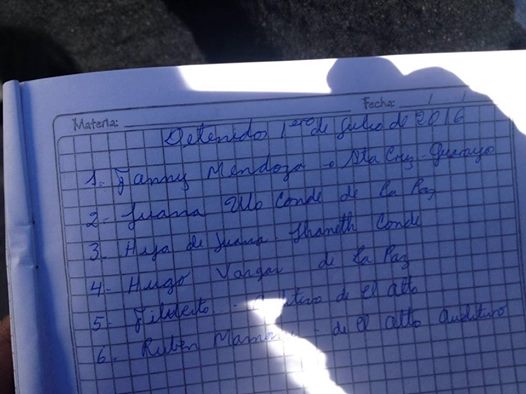 Materia: Fecha: / /
Detenido 1ero de Julio de 2016
1- Fanny Mendoza - Sta Cruz - Guarayo
2- Juana Ulo Conde de La Paz
3- Hija de Juana Jhaneth Conde
4- Hugo Vargas de La Paz
5- Filiberto de El Alto
6- Ruben Mamani - de El Alto Auditivo